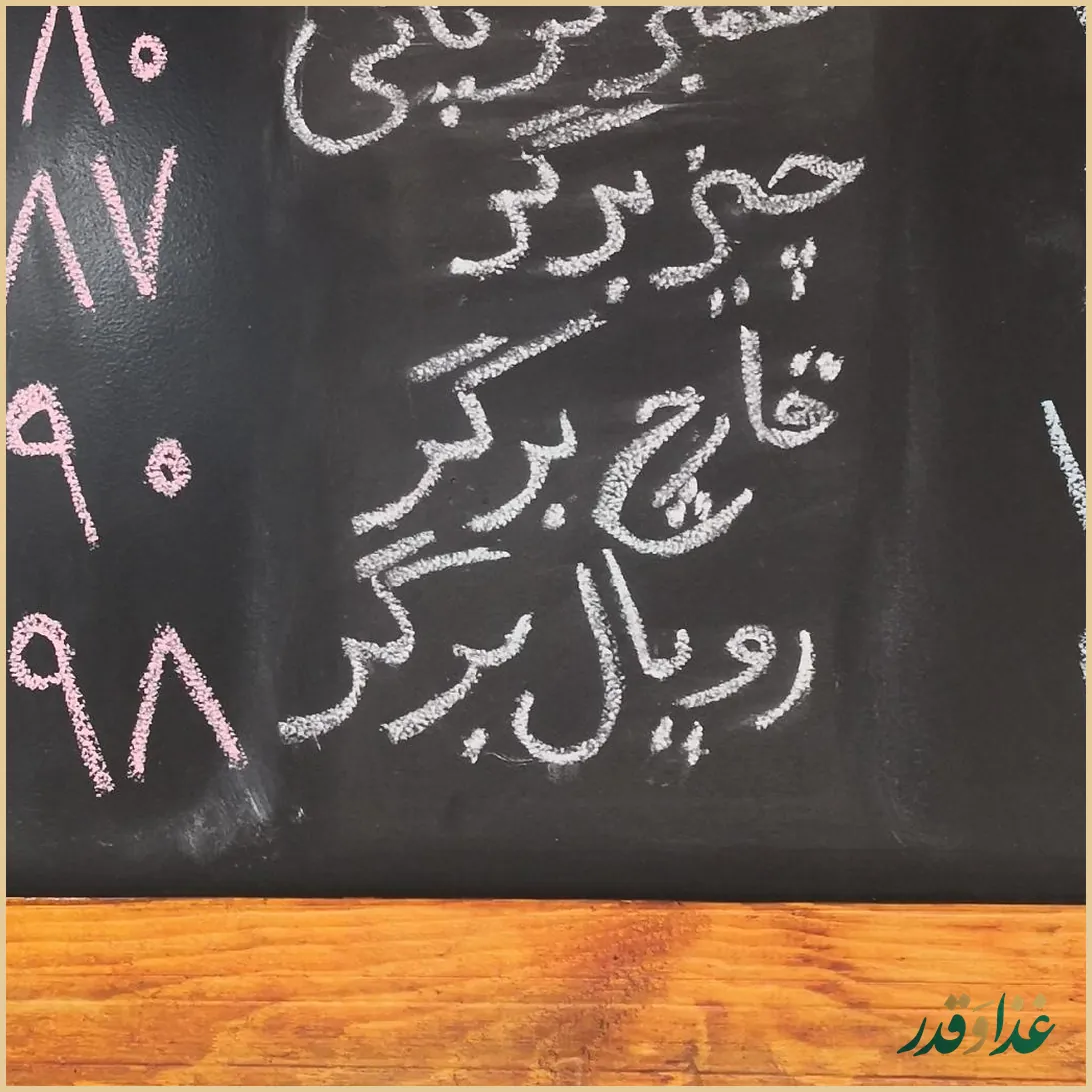 ۸۰
چیز برگر ۸۷
قارچ برگر ۹۰
رویال برگر ۹۸
غذا و قدر